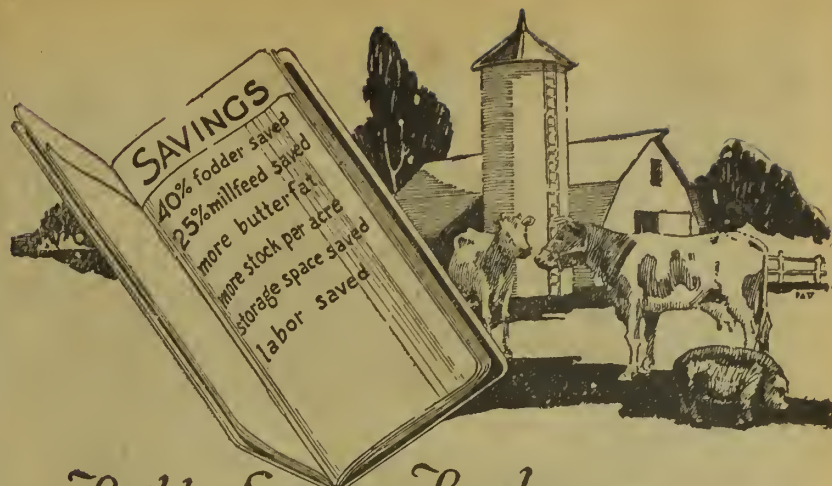 SAVINGS
40% fodder saved
25% millfeed saved
more butterfat
more stock per acre
storage space saved
labor saved